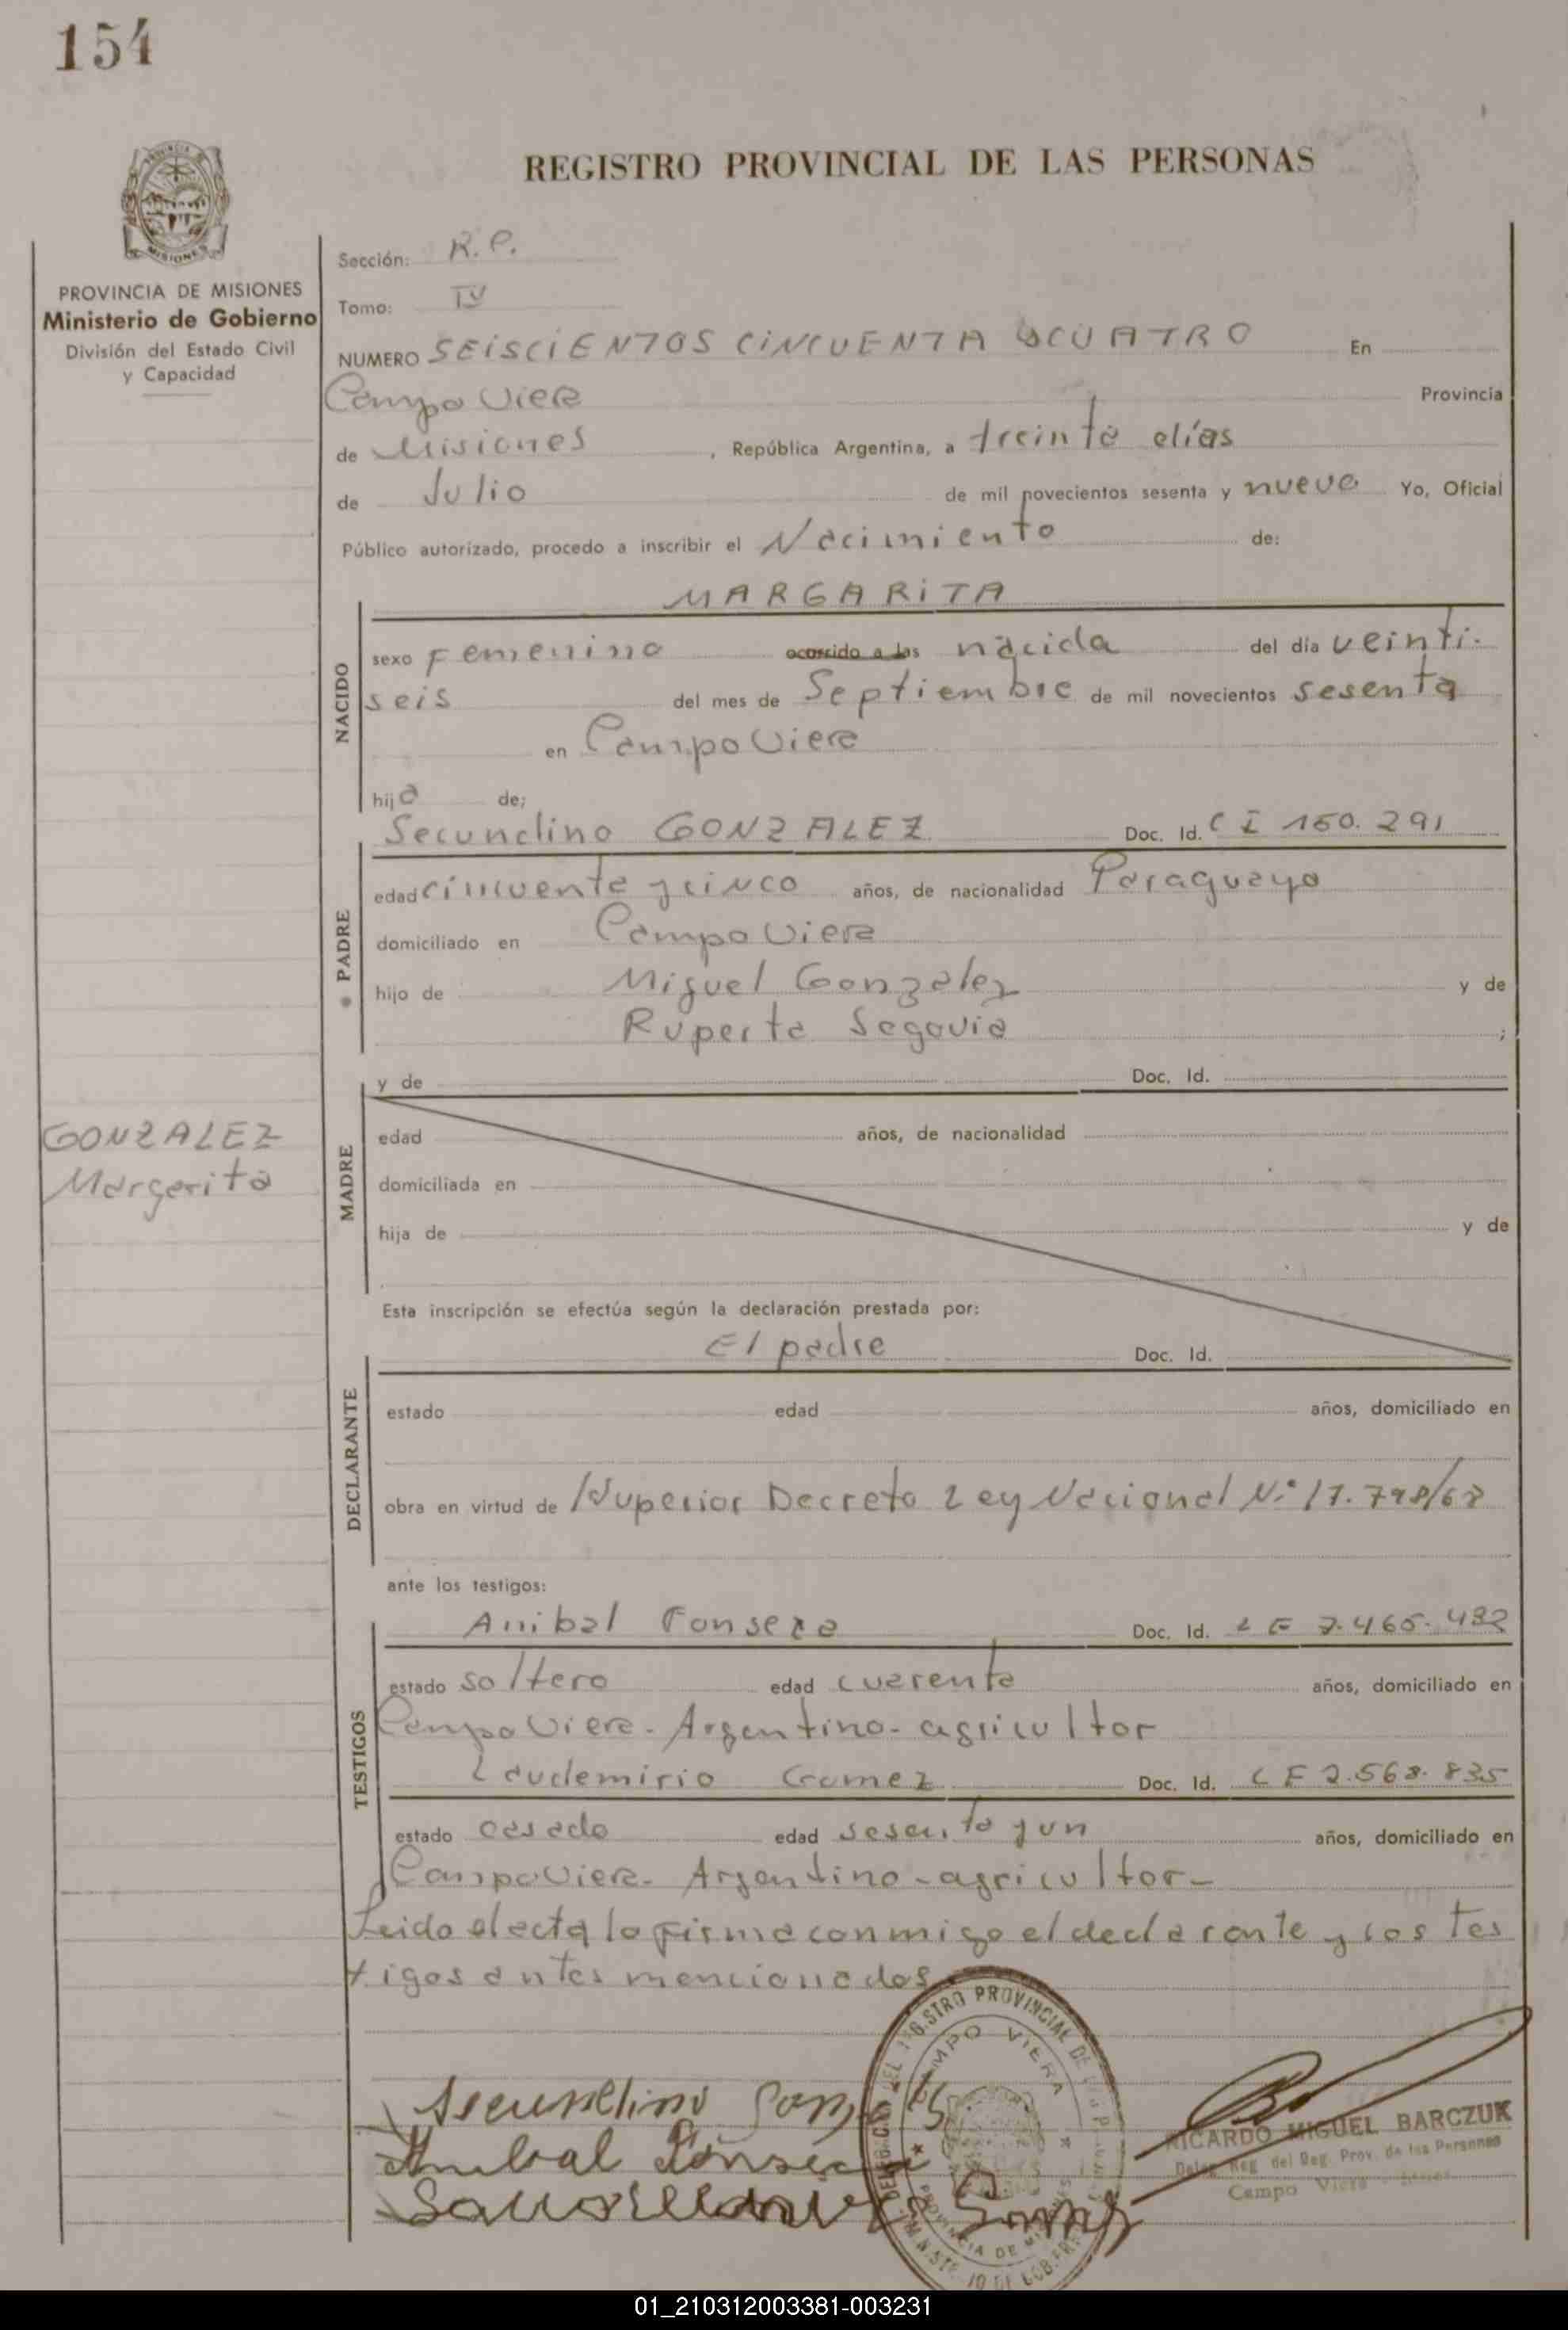 154
REGISTRO PROVINCIAL DE LAS PERSONAS
PROVINCIA DE MISIONES
Ministerio de Gobierno
División del Estado Civil
y Capacidad
Sección: R.P.
Tomo: IV
NUMERO SEISCIENTOS CINCUENTA Y CUATRO En
Campo Viera Provincia
de Misiones, República Argentina, a treinta días
de Julio de mil novecientos sesenta y nueve Yo, Oficial
Público autorizado, procedo a inscribir el Nacimiento de:
MARGARITA
NACIDO
sexo Femenino ocorrido a las nacida del día veinti-
seis del mes de Septiembre de mil novecientos sesenta
en Campo Viera
hija de;
Secundino GONZALEZ Doc. Id. C I 160.291
PADRE
edad cincuenta y cinco años, de nacionalidad Paraguayo
domiciliado en Campo Viera
hijo de Miguel Gonzalez y de
Ruperta Segovia ;
y de Doc. Id.
MADRE
edad años, de nacionalidad
domiciliada en
hija de y de
GONZALEZ
Margarita
Esta inscripción se efectúa según la declaración prestada por:
El padre Doc. Id.
DECLARANTE
estado edad años, domiciliado en
obra en virtud de /Superior Decreto Ley Nacional N° 17.798/68
ante los testigos:
Anibal Fonseca Doc. Id. L E 7.465.432
TESTIGOS
estado soltero edad cuarenta años, domiciliado en
Campo Viera- Argentino- agricultor
Laudemirio Gomez Doc. Id. L E 2.568.835
estado casado edad sesenta y un años, domiciliado en
Campo Viera- Argentino-agricultor-
Leido el acta la firma conmigo el declarante y los tes
tigos antes mencionados
Secundino Gonzalez
Anibal Fonseca
Gomez
CAMPO VIERA
PROVINCIA DE MISIONES
RICARDO MIGUEL BARCZUK
Deleg. Reg. del Reg. Prov. de las Personas
Campo Viera
01_210312003381-003231